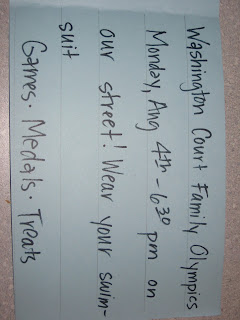 Washington Court Family Olympics
Monday, Aug 4th - 6³⁰ pm on
our street! Wear your swim-
suit
Games · Medals · Treats